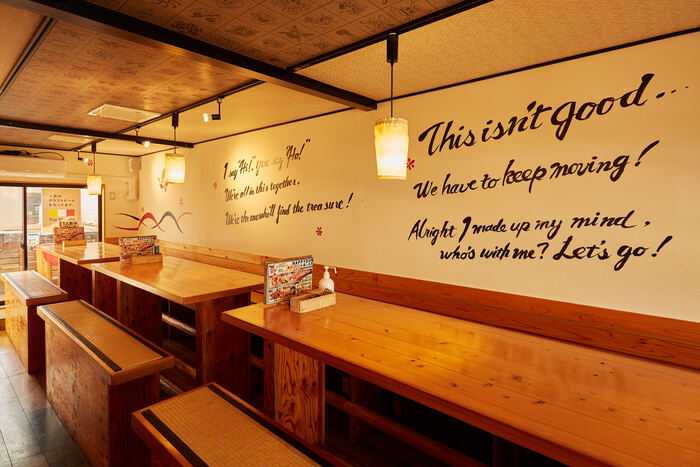 I say "Ho!", you say "Ho!"
We're all in this together.
We're the ones who'll find the treasure!
This isn't good...
We have to keep moving!
Alright I made up my mind,
who's with me? Let's go!